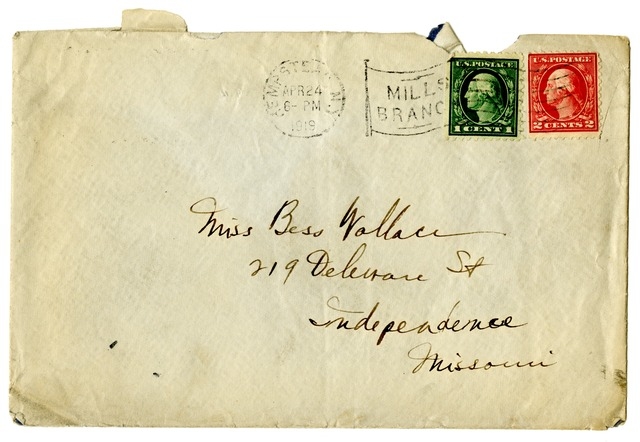 APR 24
6-PM
1919
MILLS
BRANC
U.S. POSTAGE
1 CENT 1
U.S. POSTAGE
2 CENTS 2
Miss Bess Wallace
219 Deleware St
Independence
Missouri